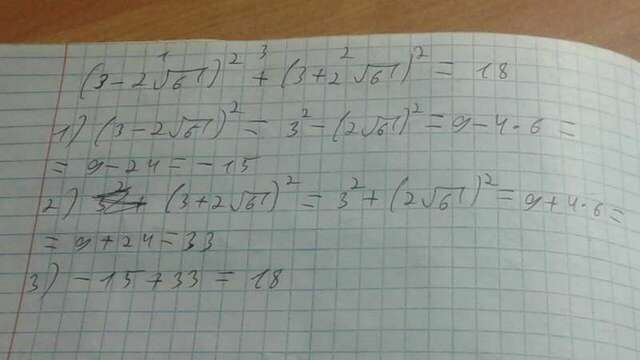 (3-2√6)² + (3+2√6)² = 18
1 3 2
1) (3-2√6)² = 3² - (2√6)² = 9-4·6 =
= 9-24 = -15
2) (3+2√6)² = 3² + (2√6)² = 9+4·6 =
= 9+24 = 33
3) -15+33 = 18